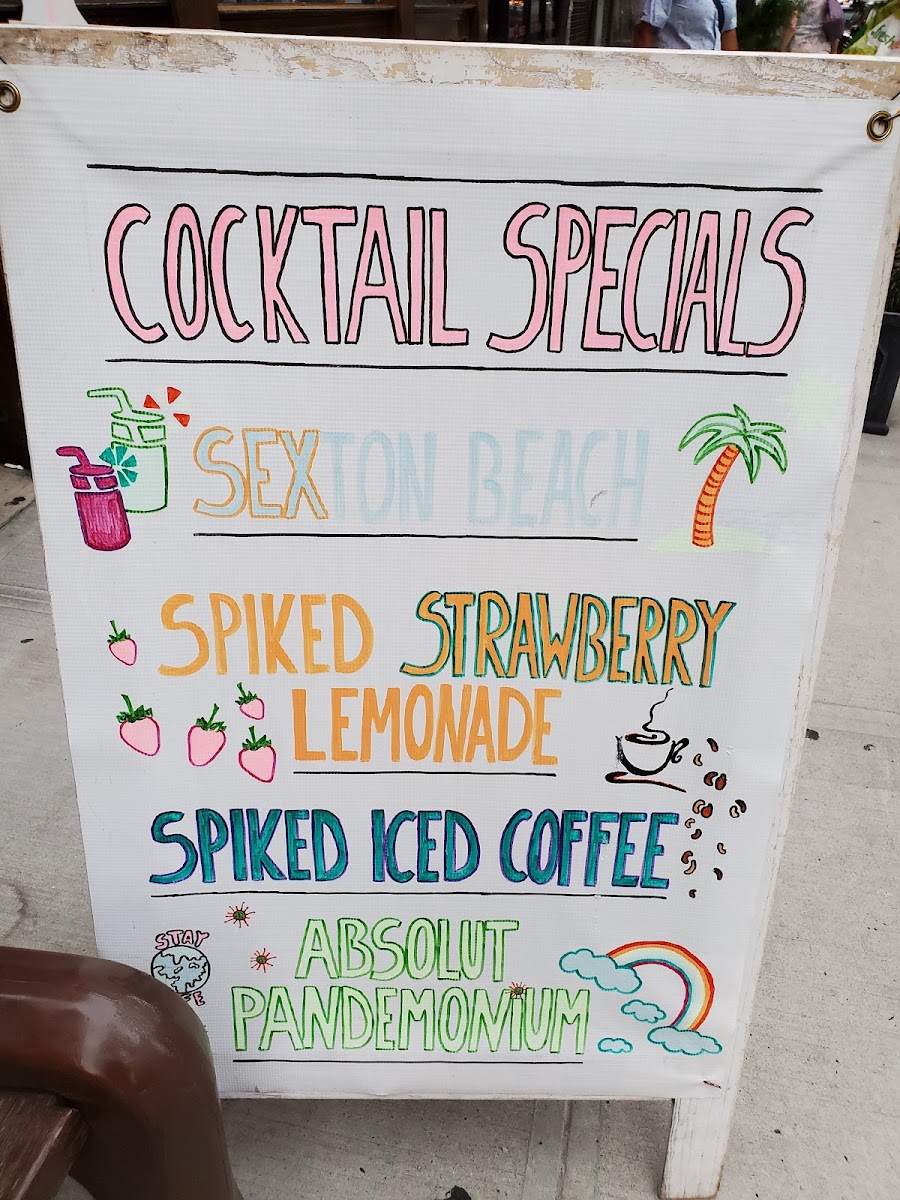 COCKTAIL SPECIALS
SEXTON BEACH
SPIKED STRAWBERRY
LEMONADE
SPIKED ICED COFFEE
STAY
ABSOLUT
PANDEMONIUM